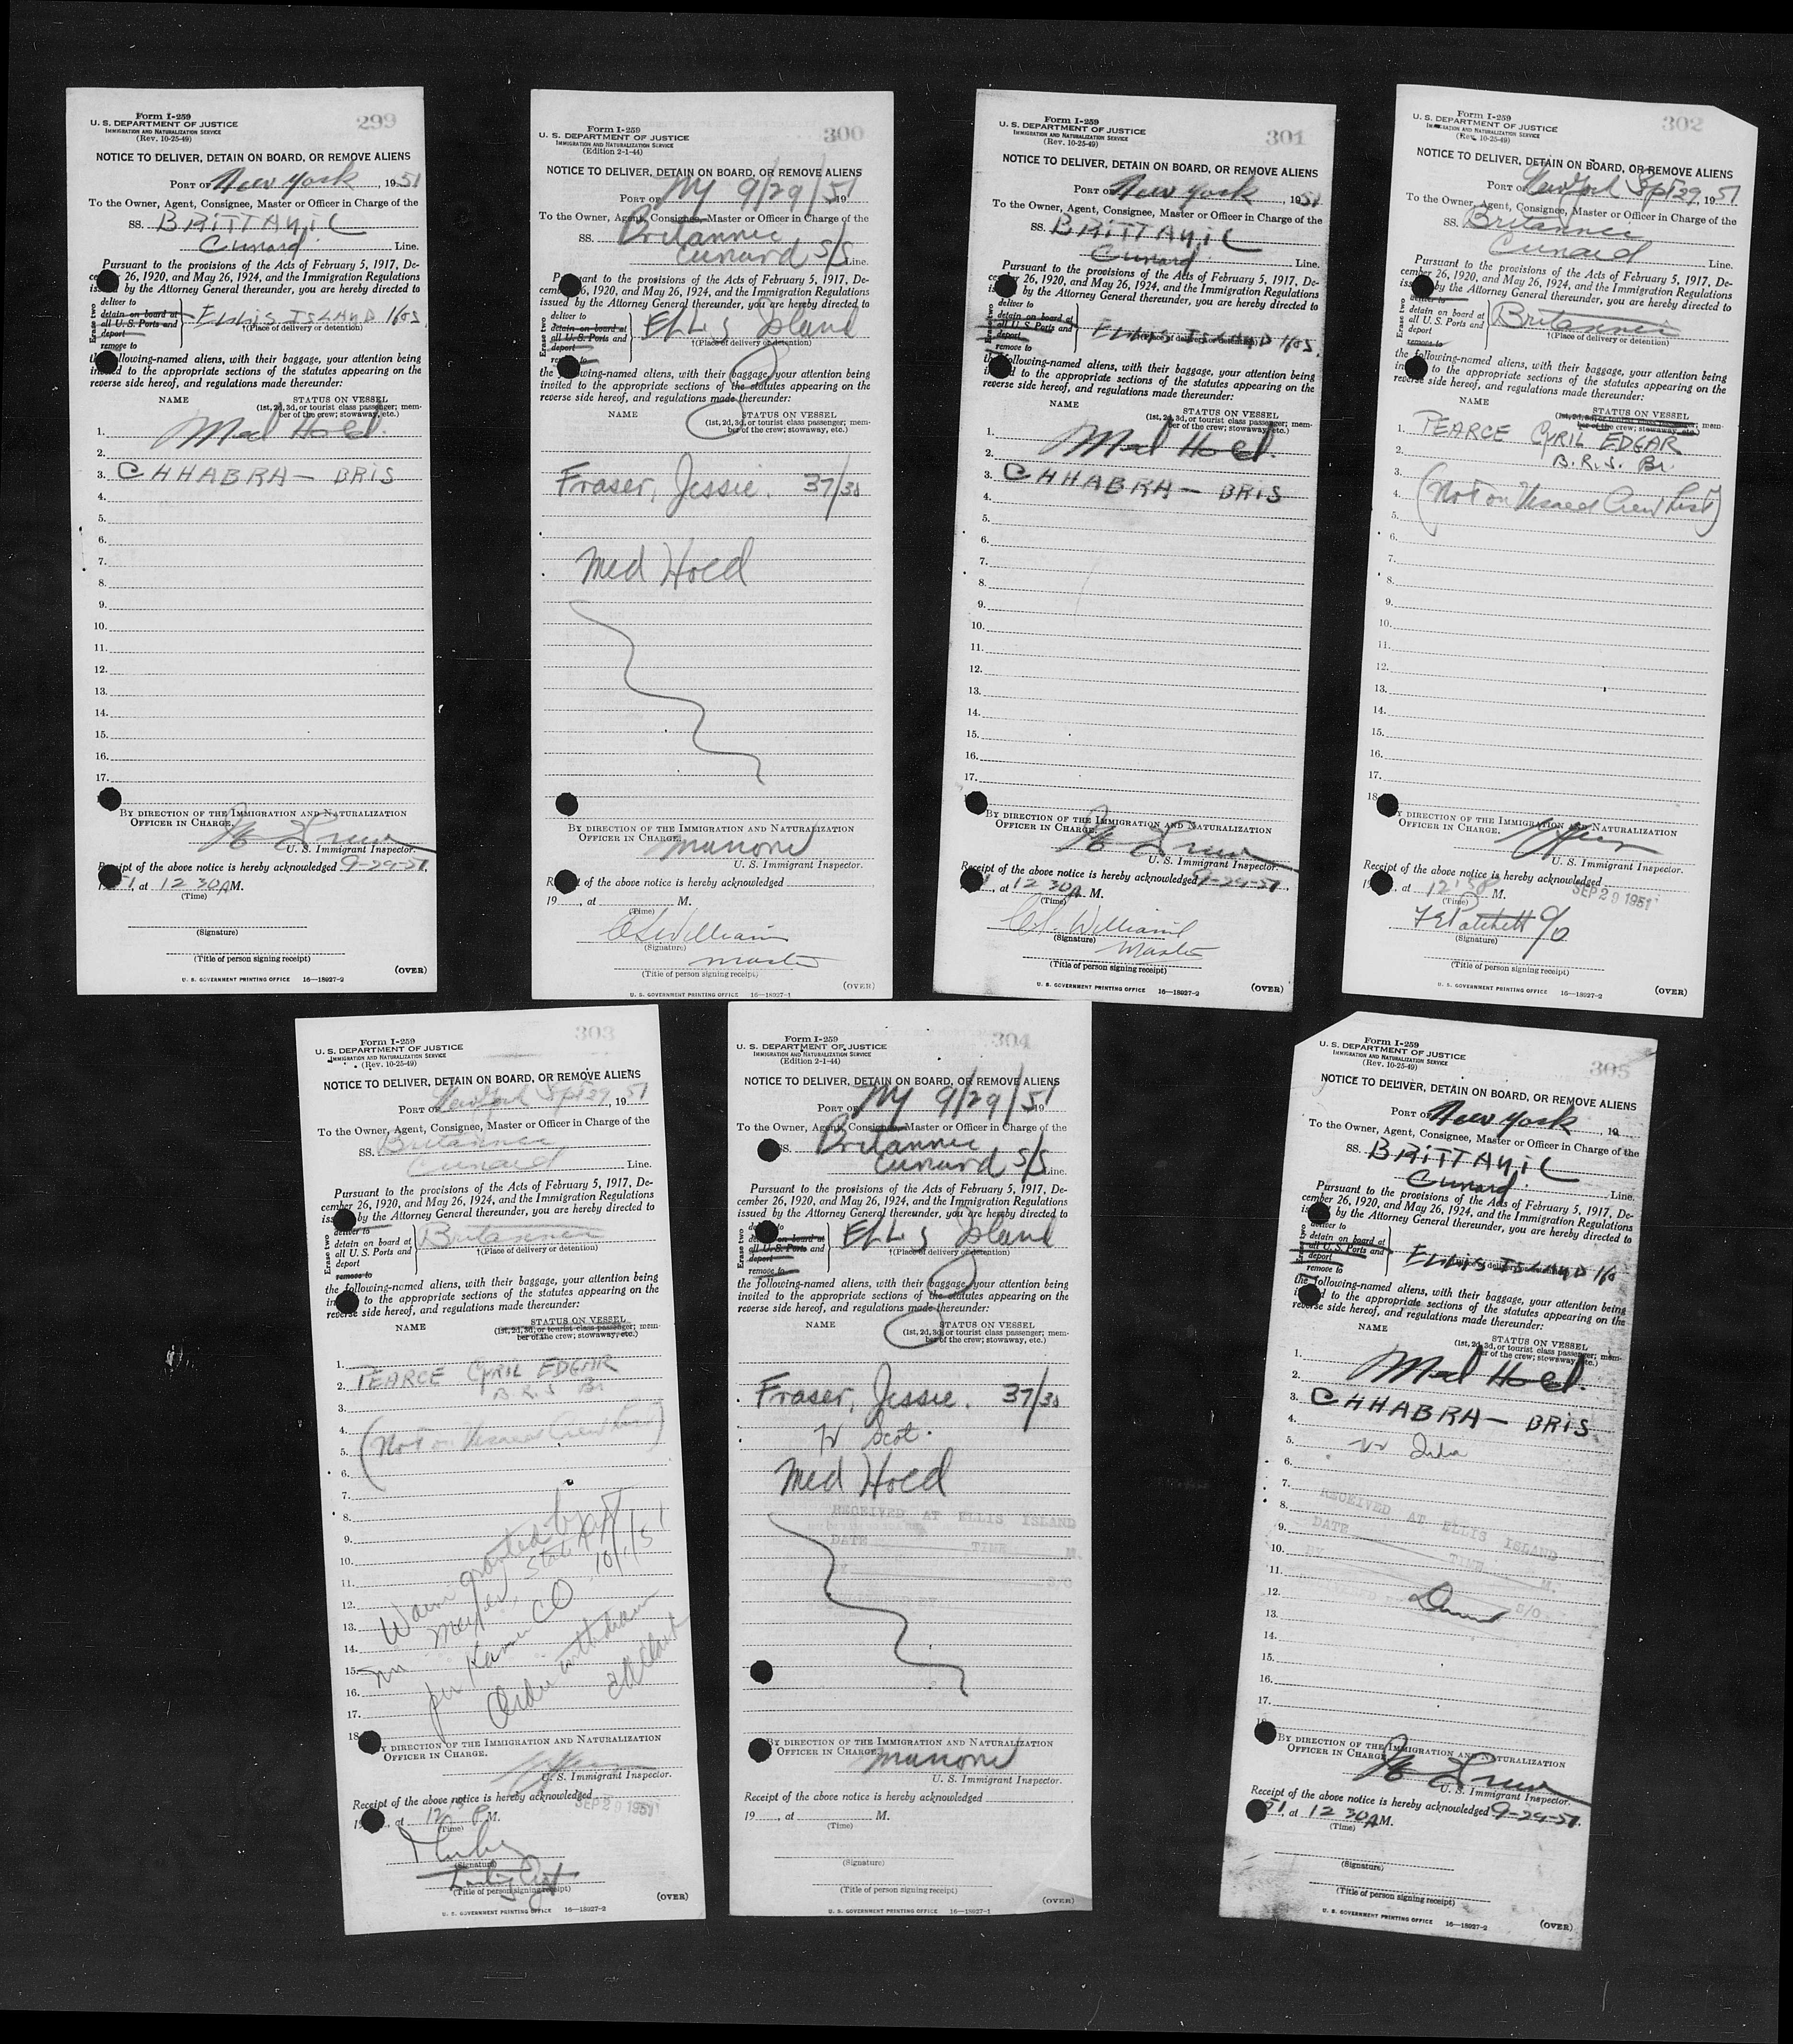 299
Form I-259
U. S. DEPARTMENT OF JUSTICE
IMMIGRATION AND NATURALIZATION SERVICE
(Rev. 10-25-49)
NOTICE TO DELIVER, DETAIN ON BOARD, OR REMOVE ALIENS
PORT OF New York, 1951
To the Owner, Agent, Consignee, Master or Officer in Charge of the
SS. BRITTANIC
Cunard Line.
Pursuant to the provisions of the Acts of February 5, 1917, De-
cember 26, 1920, and May 26, 1924, and the Immigration Regulations
issued by the Attorney General thereunder, you are hereby directed to
Erase two
deliver to
detain on board at
all U. S. Ports and
deport
remove to
ELLIS ISLAND
†(Place of delivery or detention)
the following-named aliens, with their baggage, your attention being
invited to the appropriate sections of the statutes appearing on the
reverse side hereof, and regulations made thereunder:
NAME
STATUS ON VESSEL
(1st, 2d, 3d, or tourist class passenger; mem-
ber of the crew; stowaway, etc.)
1. Med Hold.
2.
3. CHHABRA — BRIS
4.
5.
6.
7.
8.
9.
10.
11.
12.
13.
14.
15.
16.
17.
BY DIRECTION OF THE IMMIGRATION AND NATURALIZATION
OFFICER IN CHARGE.
U. S. Immigrant Inspector.
Receipt of the above notice is hereby acknowledged 9-29-51,
1951, at 12 30 A M.
(Time)
(Signature)
(Title of person signing receipt)
(OVER)
U. S. GOVERNMENT PRINTING OFFICE 16—18927-2
300
Form I-259
U. S. DEPARTMENT OF JUSTICE
IMMIGRATION AND NATURALIZATION SERVICE
(Edition 2-1-44)
NOTICE TO DELIVER, DETAIN ON BOARD, OR REMOVE ALIENS
PORT OF NY 9/29/51 19
To the Owner, Agent, Consignee, Master or Officer in Charge of the
SS. Britannic
Cunard S/S Line.
Pursuant to the provisions of the Acts of February 5, 1917, De-
cember 26, 1920, and May 26, 1924, and the Immigration Regulations
issued by the Attorney General thereunder, you are hereby directed to
Erase two
deliver to
detain on board at
all U. S. Ports and
deport
remove to
ELLIS Island
†(Place of delivery or detention)
the following-named aliens, with their baggage, your attention being
invited to the appropriate sections of the statutes appearing on the
reverse side hereof, and regulations made thereunder:
NAME
STATUS ON VESSEL
(1st, 2d, 3d, or tourist class passenger; mem-
ber of the crew; stowaway, etc.)
Fraser, Jessie. 37/30
Med Hold
BY DIRECTION OF THE IMMIGRATION AND NATURALIZATION
OFFICER IN CHARGE.
Mannone
U. S. Immigrant Inspector.
Receipt of the above notice is hereby acknowledged
19____, at ____ M.
(Time)
Williams
(Signature)
Master
(Title of person signing receipt)
(OVER)
U. S. GOVERNMENT PRINTING OFFICE 16—18927-1
301
Form I-259
U. S. DEPARTMENT OF JUSTICE
IMMIGRATION AND NATURALIZATION SERVICE
(Rev. 10-25-49)
NOTICE TO DELIVER, DETAIN ON BOARD, OR REMOVE ALIENS
PORT OF New York, 1951
To the Owner, Agent, Consignee, Master or Officer in Charge of the
SS. BRITTANIC
Cunard Line.
Pursuant to the provisions of the Acts of February 5, 1917, De-
cember 26, 1920, and May 26, 1924, and the Immigration Regulations
issued by the Attorney General thereunder, you are hereby directed to
deliver to
detain on board at
all U. S. Ports and
deport
remove to
ELLIS ISLAND
†(Place of delivery or detention)
the following-named aliens, with their baggage, your attention being
invited to the appropriate sections of the statutes appearing on the
reverse side hereof, and regulations made thereunder:
NAME
STATUS ON VESSEL
(1st, 2d, 3d, or tourist class passenger; mem-
ber of the crew; stowaway, etc.)
1. Med Hold.
2.
3. CHHABRA — BRIS
4.
5.
6.
7.
8.
9.
10.
11.
12.
13.
14.
15.
16.
17.
BY DIRECTION OF THE IMMIGRATION AND NATURALIZATION
OFFICER IN CHARGE.
U. S. Immigrant Inspector.
Receipt of the above notice is hereby acknowledged 9-29-51,
1951, at 12 30 A M.
(Time)
Williams
(Signature)
Master
(Title of person signing receipt)
(OVER)
U. S. GOVERNMENT PRINTING OFFICE 16—18927-2
302
Form I-259
U. S. DEPARTMENT OF JUSTICE
IMMIGRATION AND NATURALIZATION SERVICE
(Rev. 10-25-49)
NOTICE TO DELIVER, DETAIN ON BOARD, OR REMOVE ALIENS
PORT OF New York Sept 29, 1951
To the Owner, Agent, Consignee, Master or Officer in Charge of the
SS. Britannic
Cunard Line.
Pursuant to the provisions of the Acts of February 5, 1917, De-
cember 26, 1920, and May 26, 1924, and the Immigration Regulations
issued by the Attorney General thereunder, you are hereby directed to
Erase two
deliver to
detain on board at
all U. S. Ports and
deport
remove to
Britannic
†(Place of delivery or detention)
the following-named aliens, with their baggage, your attention being
invited to the appropriate sections of the statutes appearing on the
reverse side hereof, and regulations made thereunder:
NAME
STATUS ON VESSEL
(1st, 2d, 3d, or tourist class passenger; mem-
ber of the crew; stowaway, etc.)
1. PEARCE CYRIL EDGAR
2. B.R.S. Br.
3.
4. (Not on Visaed Crew List)
5.
6.
7.
8.
9.
10.
11.
12.
13.
14.
15.
16.
17.
18.
BY DIRECTION OF THE IMMIGRATION AND NATURALIZATION
OFFICER IN CHARGE.
U. S. Immigrant Inspector.
Receipt of the above notice is hereby acknowledged
SEP 29 1951
19__, at 12 M.
(Time)
Patchett C/O
(Signature)
(Title of person signing receipt)
(OVER)
U. S. GOVERNMENT PRINTING OFFICE 16—18927-2
303
Form I-259
U. S. DEPARTMENT OF JUSTICE
IMMIGRATION AND NATURALIZATION SERVICE
(Rev. 10-25-49)
NOTICE TO DELIVER, DETAIN ON BOARD, OR REMOVE ALIENS
PORT OF New York Sept 29, 1951
To the Owner, Agent, Consignee, Master or Officer in Charge of the
SS. Britannic
Cunard Line.
Pursuant to the provisions of the Acts of February 5, 1917, De-
cember 26, 1920, and May 26, 1924, and the Immigration Regulations
issued by the Attorney General thereunder, you are hereby directed to
Erase two
deliver to
detain on board at
all U. S. Ports and
deport
remove to
Britannic
†(Place of delivery or detention)
the following-named aliens, with their baggage, your attention being
invited to the appropriate sections of the statutes appearing on the
reverse side hereof, and regulations made thereunder:
NAME
STATUS ON VESSEL
(1st, 2d, 3d, or tourist class passenger; mem-
ber of the crew; stowaway, etc.)
1.
2. PEARCE CYRIL EDGAR
B.R.S Br
3.
4.
5. (Not on Visaed Crew List)
6.
7.
8.
9.
10.
11.
12.
13.
14.
15.
16.
17.
18.
Waiver granted by
State Dept 10/1/51
per Kamen CO
Order withdrawn
BY DIRECTION OF THE IMMIGRATION AND NATURALIZATION
OFFICER IN CHARGE.
U. S. Immigrant Inspector.
Receipt of the above notice is hereby acknowledged
SEP 29 1951
19__, at 12 P.M.
(Time)
(Signature)
(Title of person signing receipt)
(OVER)
U. S. GOVERNMENT PRINTING OFFICE 16—18927-2
304
Form I-259
U. S. DEPARTMENT OF JUSTICE
IMMIGRATION AND NATURALIZATION SERVICE
(Edition 2-1-44)
NOTICE TO DELIVER, DETAIN ON BOARD, OR REMOVE ALIENS
PORT OF NY 9/29/51 19
To the Owner, Agent, Consignee, Master or Officer in Charge of the
SS. Britannic
Cunard S/S Line.
Pursuant to the provisions of the Acts of February 5, 1917, De-
cember 26, 1920, and May 26, 1924, and the Immigration Regulations
issued by the Attorney General thereunder, you are hereby directed to
Erase two
deliver to
detain on board at
all U. S. Ports and
deport
remove to
ELLIS Island
†(Place of delivery or detention)
the following-named aliens, with their baggage, your attention being
invited to the appropriate sections of the statutes appearing on the
reverse side hereof, and regulations made thereunder:
NAME
STATUS ON VESSEL
(1st, 2d, 3d, or tourist class passenger; mem-
ber of the crew; stowaway, etc.)
Fraser, Jessie. 37/30
Scot.
Med Hold
RECEIVED AT ELLIS ISLAND
DATE TIME M.
BY S/O
BY DIRECTION OF THE IMMIGRATION AND NATURALIZATION
OFFICER IN CHARGE.
Mannone
U. S. Immigrant Inspector.
Receipt of the above notice is hereby acknowledged
19____, at ____ M.
(Time)
(Signature)
(Title of person signing receipt)
(OVER)
U. S. GOVERNMENT PRINTING OFFICE 16—18927-1
305
Form I-259
U. S. DEPARTMENT OF JUSTICE
IMMIGRATION AND NATURALIZATION SERVICE
(Rev. 10-25-49)
NOTICE TO DELIVER, DETAIN ON BOARD, OR REMOVE ALIENS
PORT OF New York, 19
To the Owner, Agent, Consignee, Master or Officer in Charge of the
SS. BRITTANIC
Cunard Line.
Pursuant to the provisions of the Acts of February 5, 1917, De-
cember 26, 1920, and May 26, 1924, and the Immigration Regulations
issued by the Attorney General thereunder, you are hereby directed to
deliver to
detain on board at
all U. S. Ports and
deport
remove to
ELLIS ISLAND
†(Place of delivery or detention)
the following-named aliens, with their baggage, your attention being
invited to the appropriate sections of the statutes appearing on the
reverse side hereof, and regulations made thereunder:
NAME
STATUS ON VESSEL
(1st, 2d, 3d, or tourist class passenger; mem-
ber of the crew; stowaway, etc.)
1.
2. Med Hold.
3. CHHABRA — BRIS.
4.
5.
6.
7.
8.
9.
10.
11.
12.
13.
14.
15.
16.
17.
RECEIVED AT ELLIS ISLAND
DATE TIME M.
BY S/O
BY DIRECTION OF THE IMMIGRATION AND NATURALIZATION
OFFICER IN CHARGE
U. S. Immigrant Inspector.
Receipt of the above notice is hereby acknowledged 9-29-51,
1951, at 12 30 A M.
(Time)
(Signature)
(Title of person signing receipt)
(OVER)
U. S. GOVERNMENT PRINTING OFFICE 16—18927-2